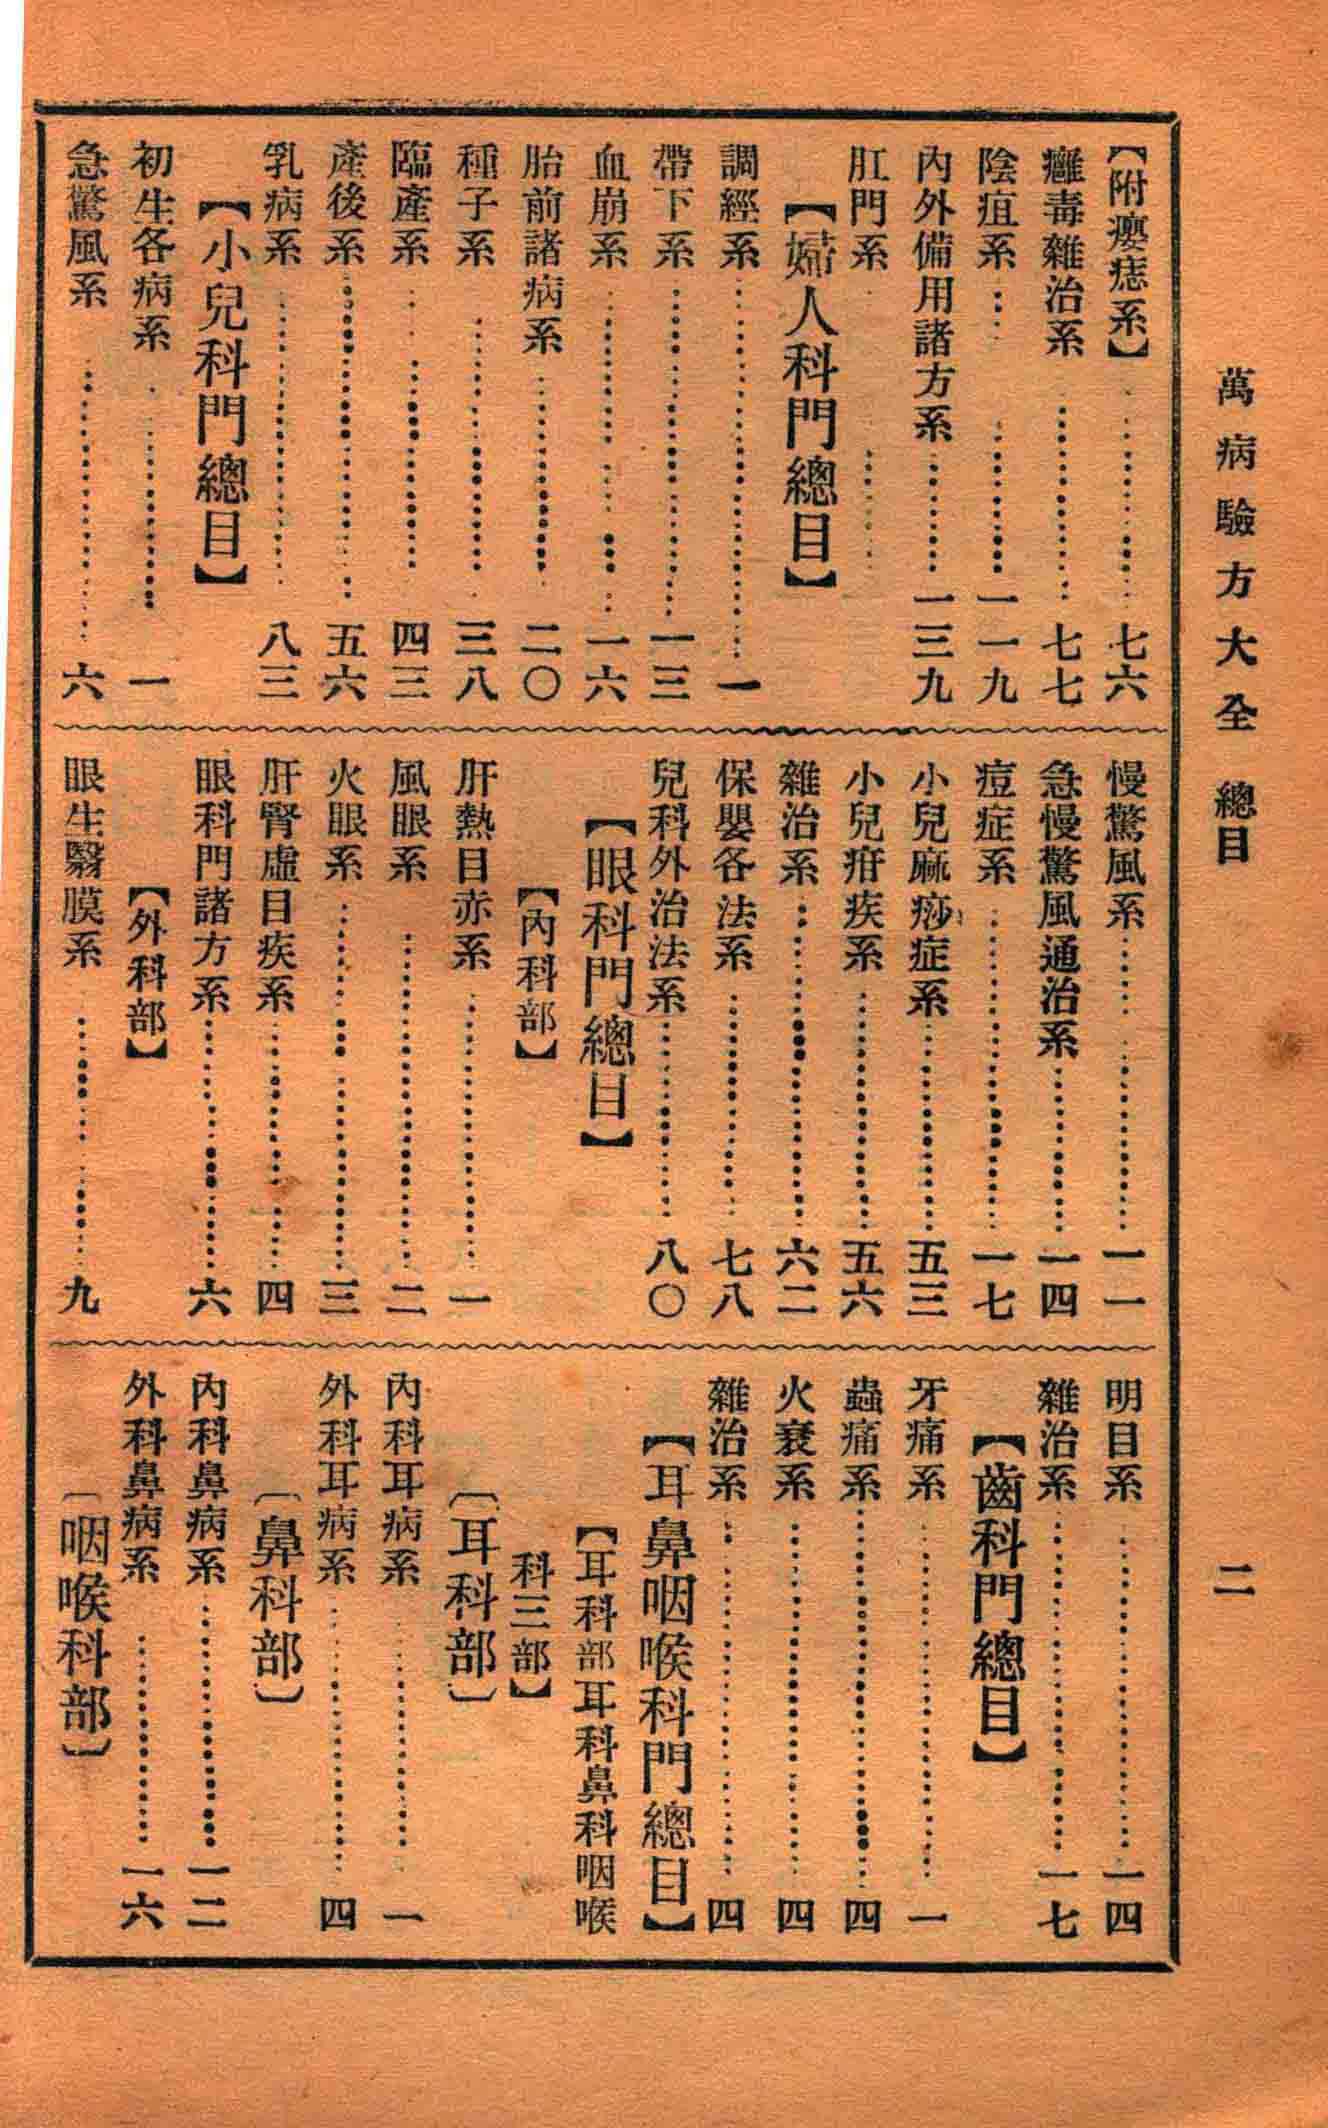 萬病驗方大全 總目 二
【附癭痣系】……七六
癰毒雜治系……七七
陰疽系……一一九
內外備用諸方系……一三九
肛門系……
【婦人科門總目】
調經系……一
帶下系……一三
血崩系……一六
胎前諸病系……二〇
種子系……三八
臨產系……四三
產後系……五六
乳病系……八三
【小兒科門總目】
初生各病系……一
急驚風系……六
慢驚風系……一一
急慢驚風通治系……一四
痘症系……一七
小兒麻痧症系……五三
小兒疳疾系……五六
雜治系……六二
保嬰各法系……七八
兒科外治法系……八〇
【眼科門總目】
【內科部】
肝熱目赤系……一
風眼系……二
火眼系……三
肝腎虛目疾系……四
眼科門諸方系……六
【外科部】
眼生翳膜系……九
明目系……一四
雜治系……一七
【齒科門總目】
牙痛系……一
蟲痛系……四
火衰系……四
雜治系……四
【耳鼻咽喉科門總目】
【耳科部耳科鼻科咽喉
科三部】
〔耳科部〕
內科耳病系……一
外科耳病系……四
〔鼻科部〕
內科鼻病系……一二
外科鼻病系……一六
〔咽喉科部〕